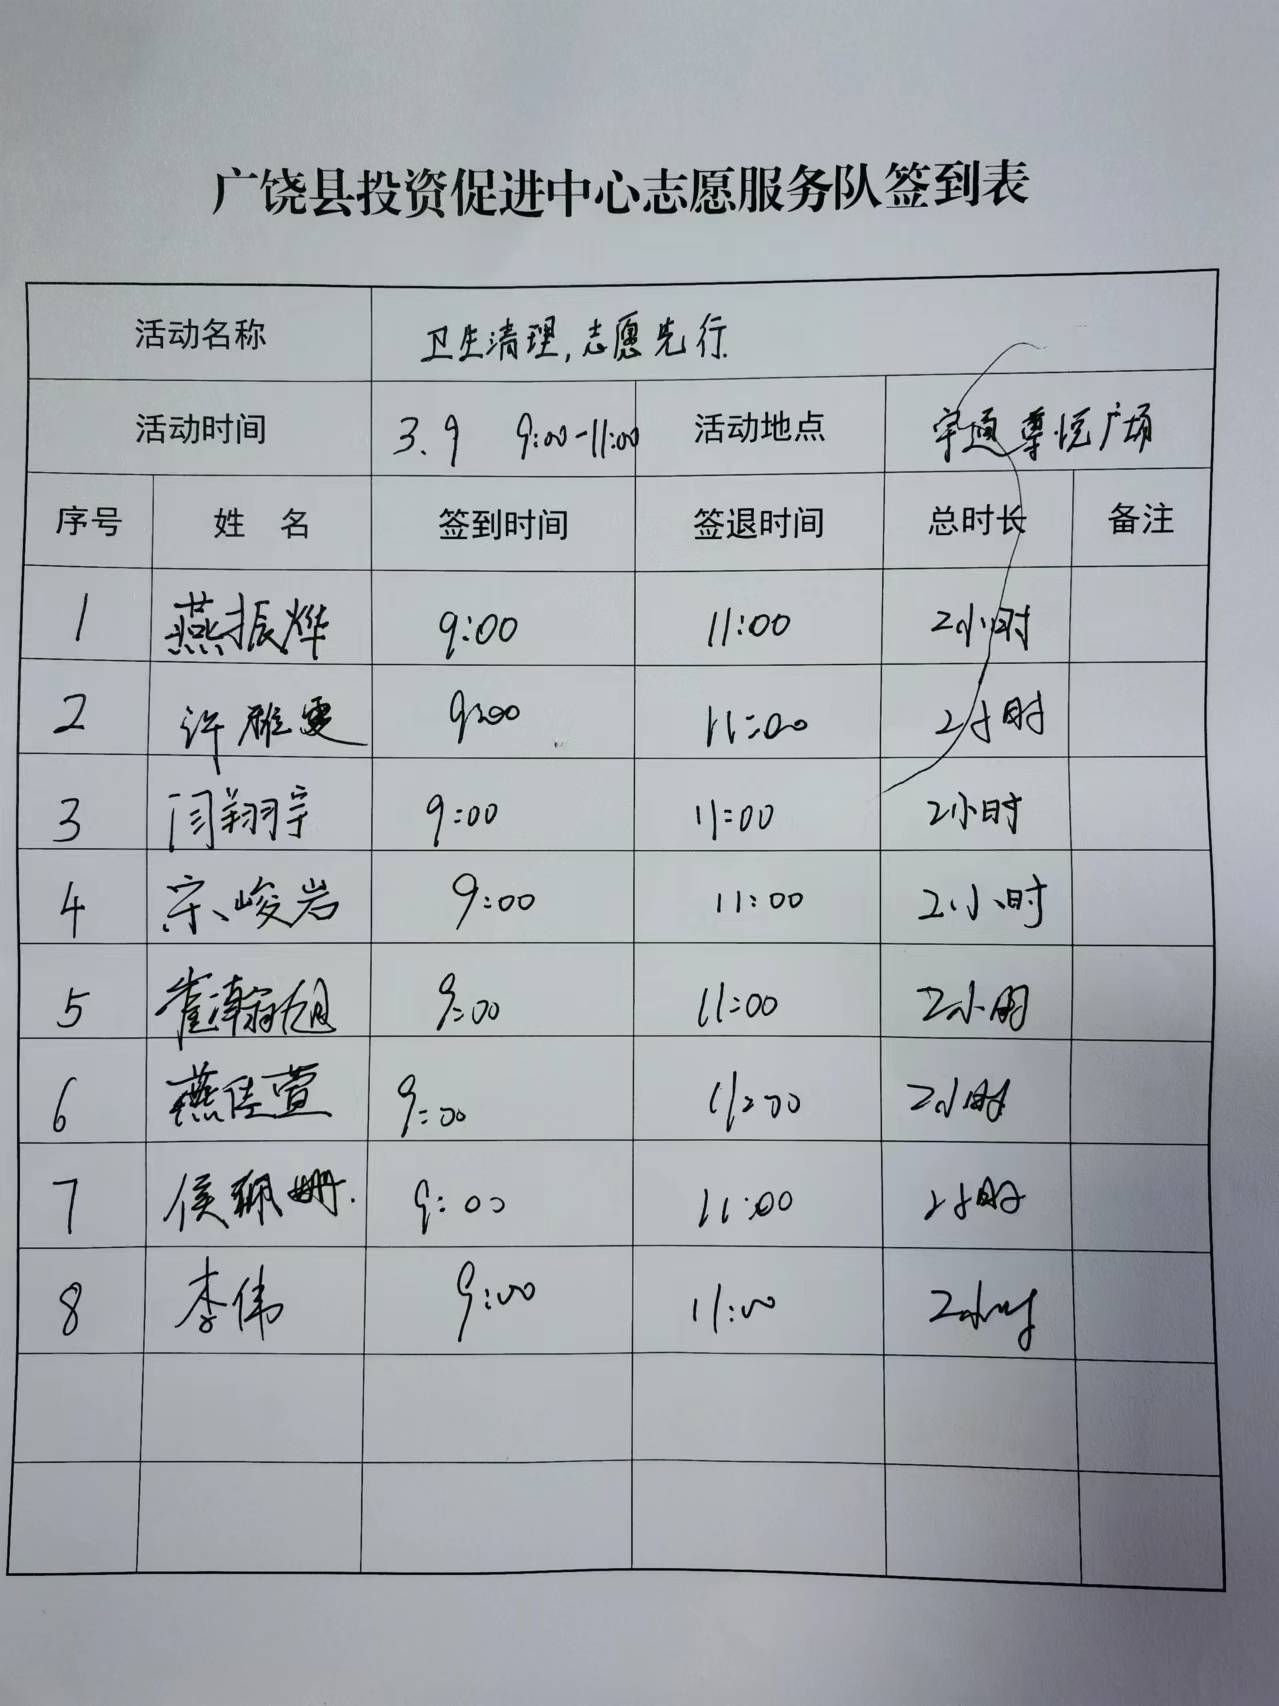 广饶县投资促进中心志愿服务队签到表
活动名称 卫生清理,志愿先行
活动时间 3.9 9:00-11:00 活动地点 宇通尊悦广场
序号 姓 名 签到时间 签退时间 总时长 备注
1 燕振烨 9:00 11:00 2小时
2 许雁雯 9:00 11:00 2小时
3 闫翔宇 9:00 11:00 2小时
4 宋峻岩 9:00 11:00 2小时
5 崔瀚旭 9:00 11:00 2小时
6 燕佳萱 9:00 11:00 2小时
7 侯珮姗. 9:00 11:00 2小时
8 李伟 9:00 11:00 2小时